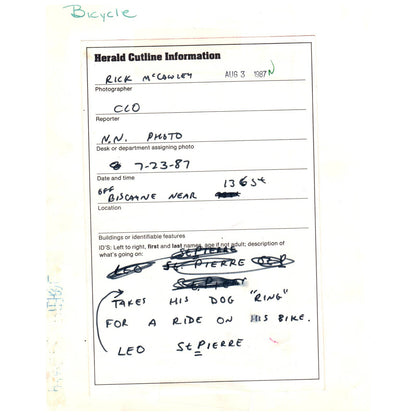 Bicycle
Herald Cutline Information
RICK McCAWLEY AUG 3 1987 N
Photographer
CLO
Reporter
N.N. PHOTO
Desk or department assigning photo
7-23-87
Date and time
OFF BISCAYNE NEAR 136 St
Location
Buildings or identifiable features
ID'S: Left to right, first and last names, age if not adult; description of
what's going on:
St PIERRE
LEO St PIERRE
TAKES HIS DOG "RING"
FOR A RIDE ON HIS BIKE.
LEO St PIERRE